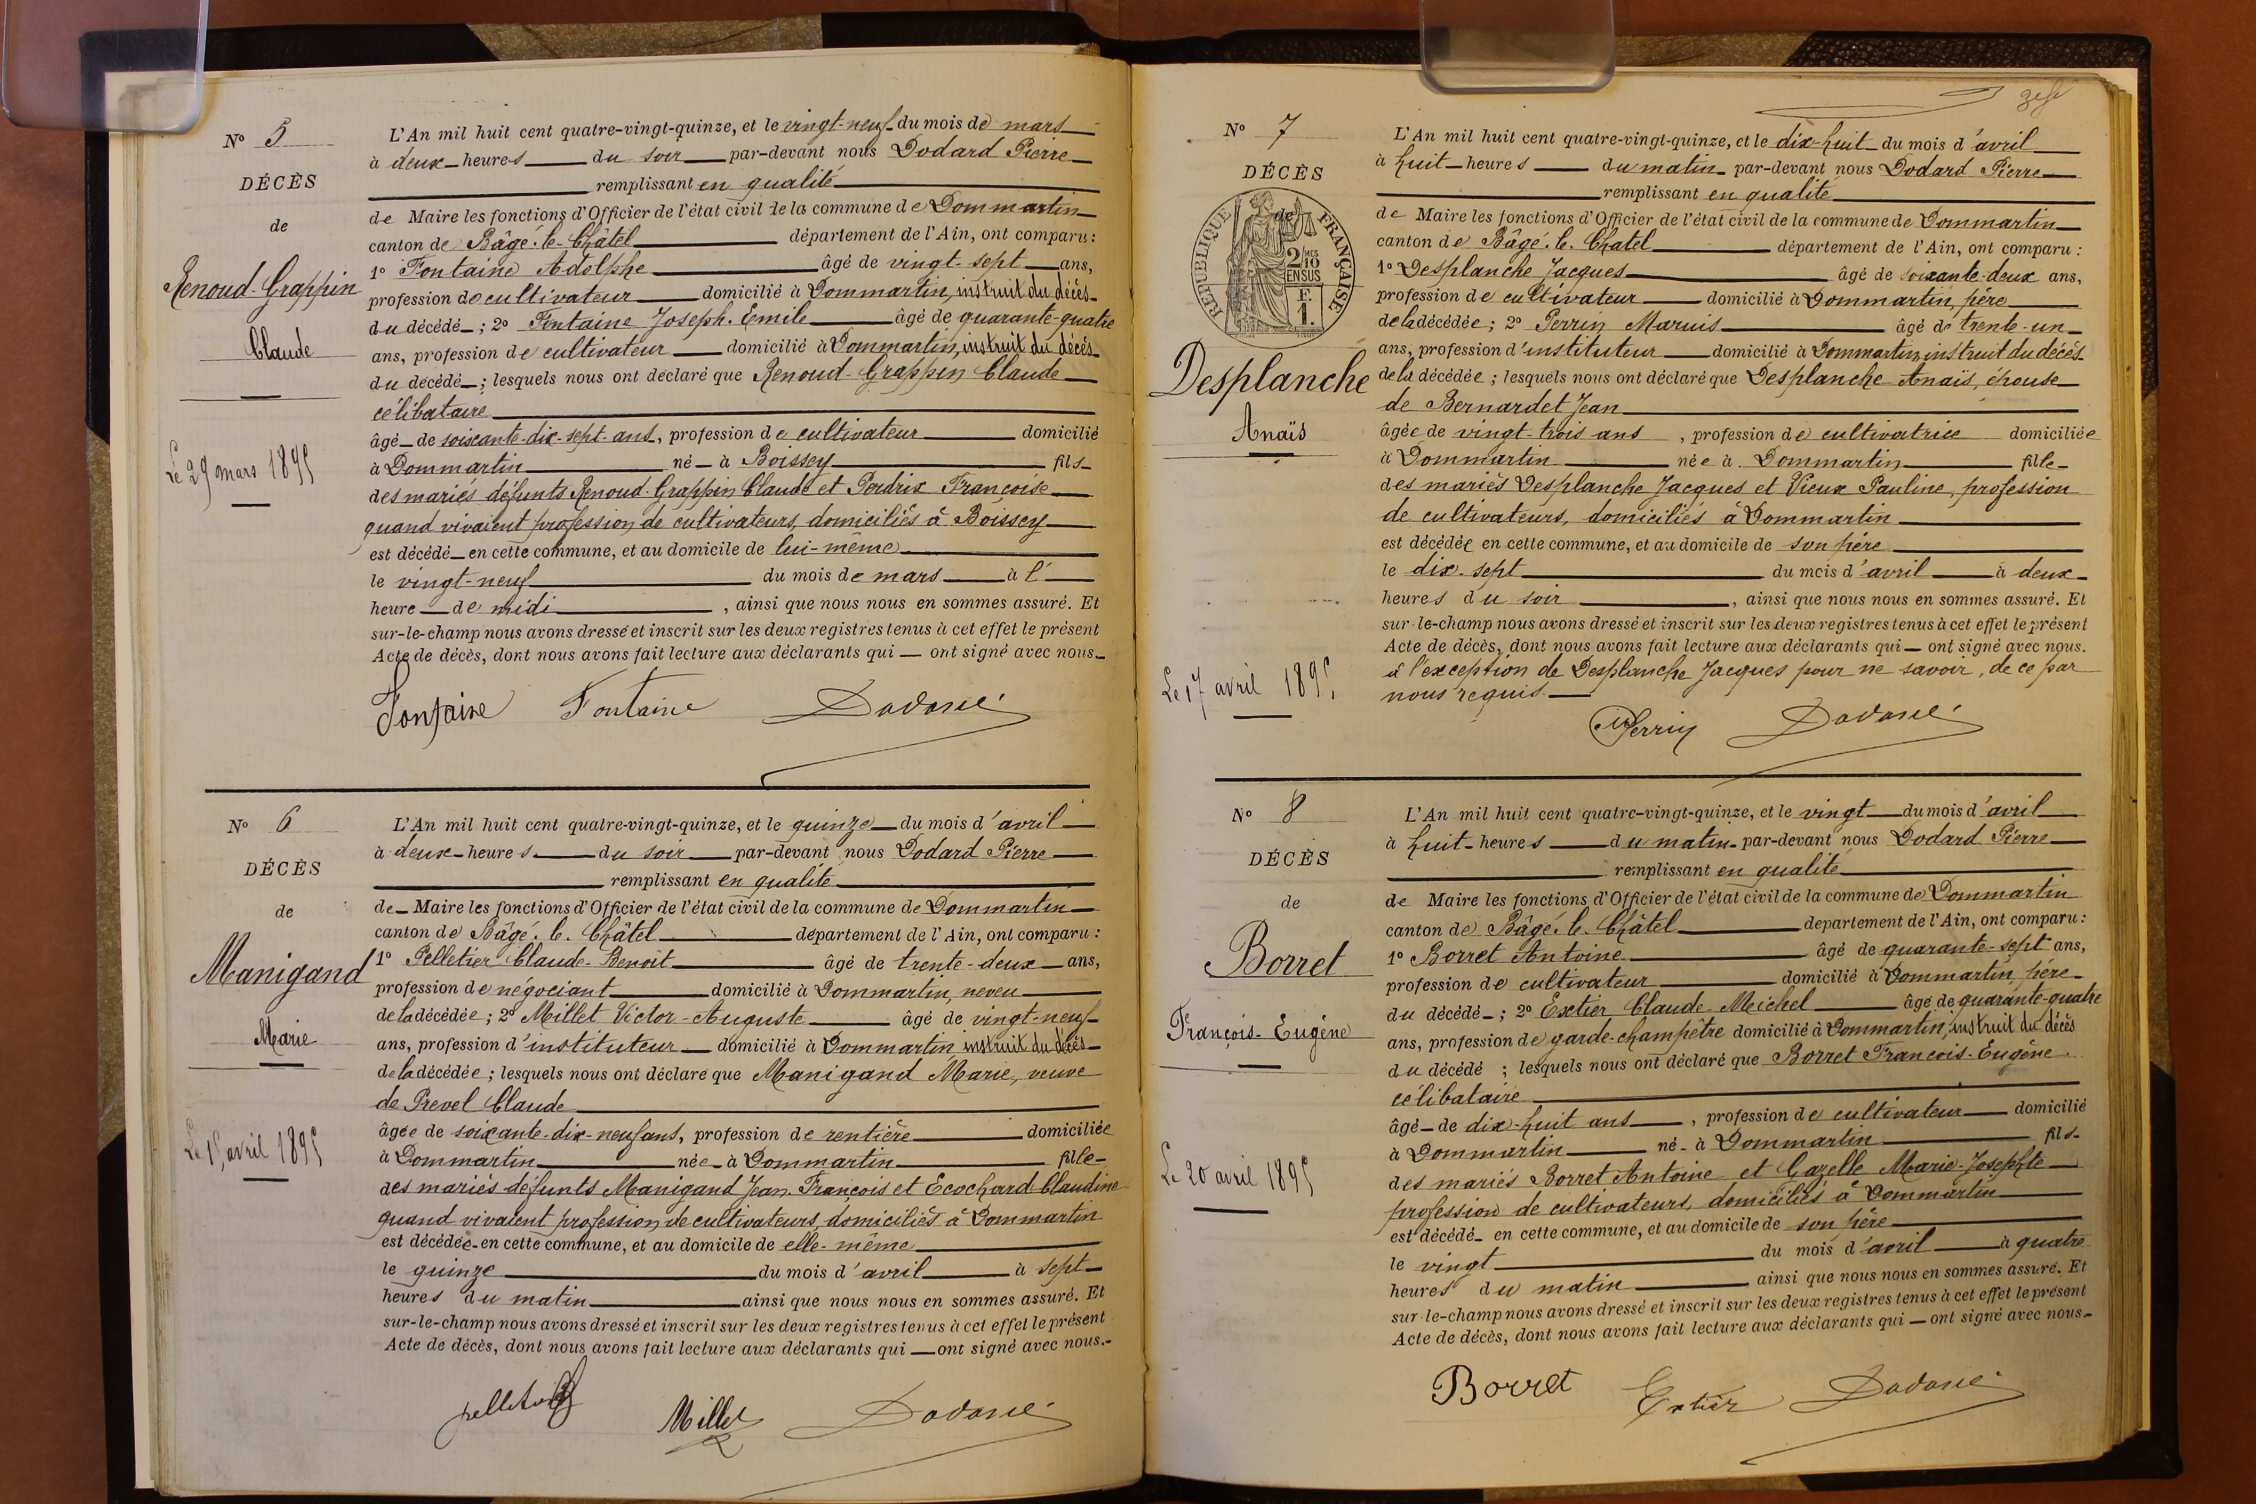 N° 5
DÉCÈS
de
Renoud-Grappin
Claude
Le 29 mars 1895
L'An mil huit cent quatre-vingt-quinze, et le vingt-neuf du mois de mars
à deux heures du soir par-devant nous Dodard Pierre
remplissant en qualité
de Maire les fonctions d'Officier de l'état civil de la commune de Dommartin
canton de Bâgé-le-Châtel département de l'Ain, ont comparu :
1° Fontaine Adolphe âgé de vingt-sept ans,
profession de cultivateur domicilié à Dommartin, instruit du décès
du décédé ; 2° Fontaine Joseph-Emile âgé de quarante-quatre
ans, profession de cultivateur domicilié à Dommartin, instruit du décès
du décédé ; lesquels nous ont déclaré que Renoud-Grappin Claude
célibataire
âgé de soixante-dix-sept ans, profession de cultivateur domicilié
à Dommartin né à Boissey fils
des mariés défunts Renoud-Grappin Claude et Perdrix Françoise
quand vivaient profession de cultivateurs, domiciliés à Boissey
est décédé en cette commune, et au domicile de lui-même
le vingt-neuf du mois de mars à l'
heure de midi, ainsi que nous nous en sommes assuré. Et
sur-le-champ nous avons dressé et inscrit sur les deux registres tenus à cet effet le présent
Acte de décès, dont nous avons fait lecture aux déclarants qui ont signé avec nous.
Fontaine Fontaine Dodard
N° 6
DÉCÈS
de
Manigand
Marie
Le 15 avril 1895
L'An mil huit cent quatre-vingt-quinze, et le quinze du mois d'avril
à deux heures du soir par-devant nous Dodard Pierre
remplissant en qualité
de Maire les fonctions d'Officier de l'état civil de la commune de Dommartin
canton de Bâgé-le-Châtel département de l'Ain, ont comparu :
1° Pelletier Claude-Benoit âgé de trente-deux ans,
profession de négociant domicilié à Dommartin, neveu
de la décédée ; 2° Millet Victor-Auguste âgé de vingt-neuf
ans, profession d'instituteur domicilié à Dommartin instruit du décès
de la décédée ; lesquels nous ont déclaré que Manigand Marie, veuve
de Prevel Claude
âgée de soixante-dix-neuf ans, profession de rentière domiciliée
à Dommartin née à Dommartin fille
des mariés défunts Manigand Jean-François et Ecochard Claudine
quand vivaient profession de cultivateurs, domiciliés à Dommartin
est décédée en cette commune, et au domicile de elle-même
le quinze du mois d'avril à sept
heures du matin ainsi que nous nous en sommes assuré. Et
sur-le-champ nous avons dressé et inscrit sur les deux registres tenus à cet effet le présent
Acte de décès, dont nous avons fait lecture aux déclarants qui ont signé avec nous.
Pelletier Millet Dodard
N° 7
DÉCÈS
de
REPUBLIQUE FRANÇAISE
2/10 MES
EN SUS
F.
1.
Desplanche
Anaïs
Le 17 avril 1895
L'An mil huit cent quatre-vingt-quinze, et le dix-huit du mois d'avril
à huit heures du matin par-devant nous Dodard Pierre
remplissant en qualité
de Maire les fonctions d'Officier de l'état civil de la commune de Dommartin
canton de Bâgé-le-Chatel département de l'Ain, ont comparu :
1° Desplanche Jacques âgé de soixante-deux ans,
profession de cultivateur domicilié à Dommartin, père
de la décédée ; 2° Perrin Maruis âgé de trente-un
ans, profession d'instituteur domicilié à Dommartin, instruit du décès
de la décédée ; lesquels nous ont déclaré que Desplanche Anaïs, épouse
de Bernardet Jean
âgée de vingt-trois ans, profession de cultivatrice domiciliée
à Dommartin née à Dommartin fille
des mariés Desplanche Jacques et Vieux Pauline, profession
de cultivateurs, domiciliés à Dommartin
est décédée en cette commune, et au domicile de son père
le dix-sept du mois d'avril à deux
heures du soir, ainsi que nous nous en sommes assuré. Et
sur-le-champ nous avons dressé et inscrit sur les deux registres tenus à cet effet le présent
Acte de décès, dont nous avons fait lecture aux déclarants qui ont signé avec nous.
à l'exception de Desplanche Jacques pour ne savoir, de ce par
nous requis.
Perrin Dodard
N° 8
DÉCÈS
de
Borret
François-Eugène
Le 20 avril 1895
L'An mil huit cent quatre-vingt-quinze, et le vingt du mois d'avril
à huit heures du matin par-devant nous Dodard Pierre
remplissant en qualité
de Maire les fonctions d'Officier de l'état civil de la commune de Dommartin
canton de Bâgé-le-Châtel département de l'Ain, ont comparu :
1° Borret Antoine âgé de quarante-sept ans,
profession de cultivateur domicilié à Dommartin, père
du décédé ; 2° Extier Claude-Meichel âgé de quarante-quatre
ans, profession de garde-champêtre domicilié à Dommartin, instruit du décès
du décédé ; lesquels nous ont déclaré que Borret François-Eugène
célibataire
âgé de dix-huit ans, profession de cultivateur domicilié
à Dommartin né à Dommartin fils
des mariés Borret Antoine et Gazelle Marie-Josephte
profession de cultivateurs, domiciliés à Dommartin
est décédé en cette commune, et au domicile de son père
le vingt du mois d'avril à quatre
heures du matin ainsi que nous nous en sommes assuré. Et
sur-le-champ nous avons dressé et inscrit sur les deux registres tenus à cet effet le présent
Acte de décès, dont nous avons fait lecture aux déclarants qui ont signé avec nous.
Borret Extier Dodard